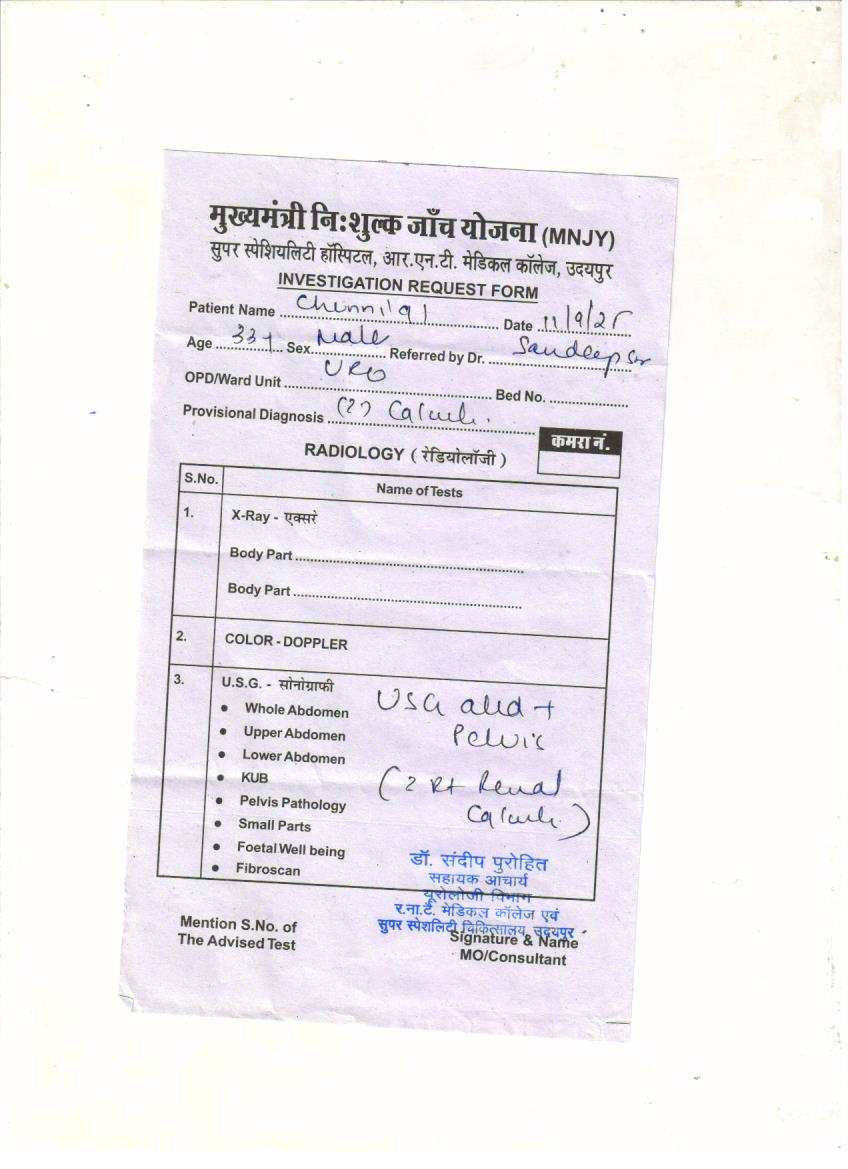 मुख्यमंत्री नि:शुल्क जाँच योजना (MNJY)
सुपर स्पेशियलिटी हॉस्पिटल, आर.एन.टी. मेडिकल कॉलेज, उदयपुर
INVESTIGATION REQUEST FORM
Patient Name Date 11/9/25
Age 33y Sex Male Referred by Dr. Sandeep Sir
OPD/Ward Unit URO Bed No.
Provisional Diagnosis (?) Calculi.
RADIOLOGY ( रेडियोलॉजी ) कमरा नं.
S.No. Name of Tests
1. X-Ray - एक्सरे
Body Part
Body Part
2. COLOR - DOPPLER
3. U.S.G. - सोनोग्राफी
• Whole Abdomen USG abd +
• Upper Abdomen Pelvis
• Lower Abdomen
• KUB (? Rt Renal
• Pelvis Pathology Calculi.)
• Small Parts
• Foetal Well being
• Fibroscan
डॉ. संदीप पुरोहित
सहायक आचार्य
यूरोलोजी विभाग
र.ना.टै. मेडिकल कॉलेज एवं
सुपर स्पेशलिटी चिकित्सालय, उदयपुर
Mention S.No. of Signature & Name
The Advised Test MO/Consultant